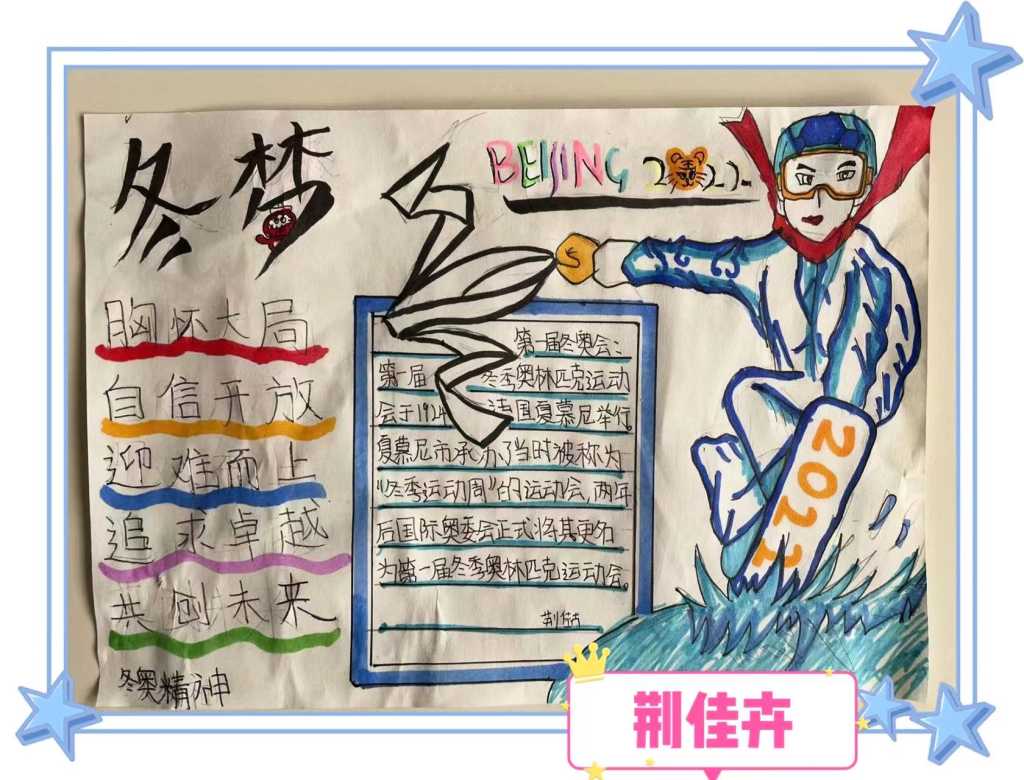 冬梦
BEIJING 2022
胸怀大局
自信开放
迎难而上
追求卓越
共创未来
冬奥精神
第一届冬奥会:
第一届冬季奥林匹克运动
会于1924法国夏慕尼举行。
夏慕尼市承办了当时被称为
“冬季运动周”的运动会,两年
后国际奥委会正式将其更名
为第一届冬季奥林匹克运动会。
荆佳卉
2022
荆佳卉